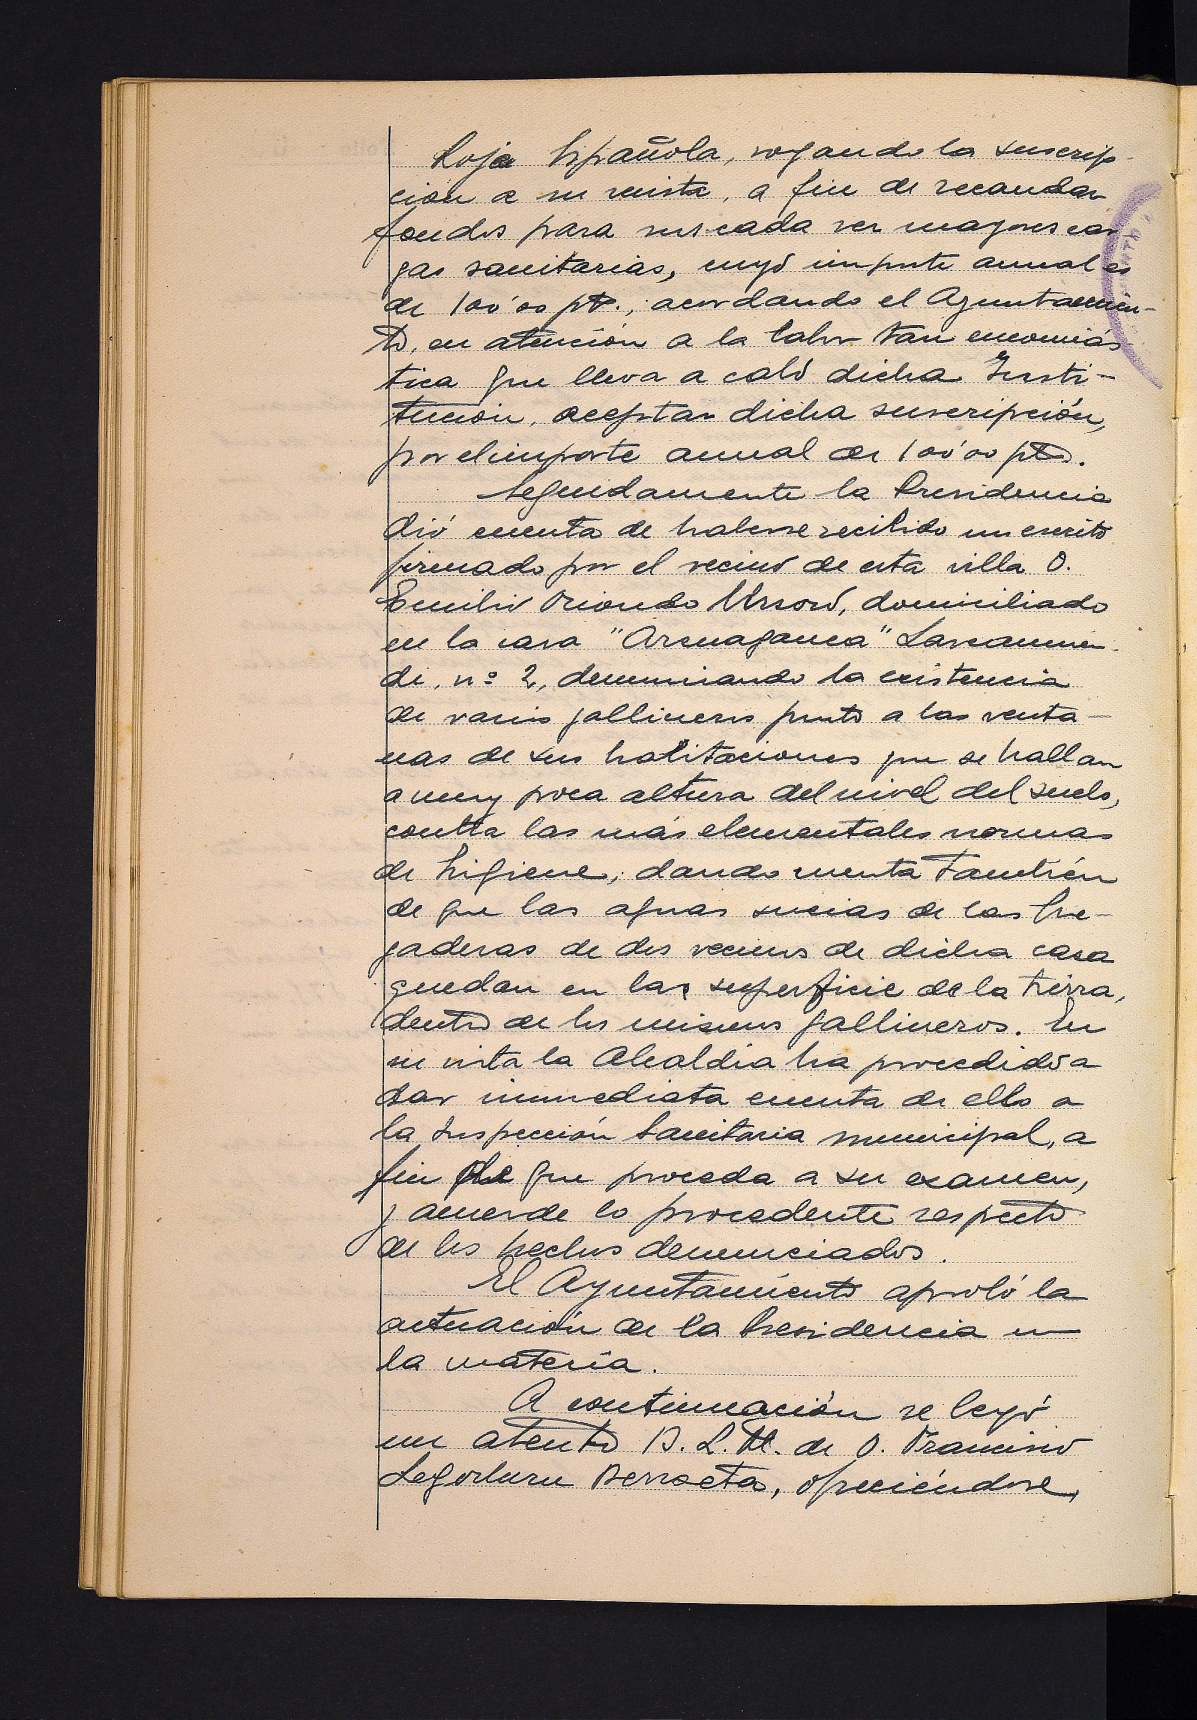 Roja Española, rogando la suscrip-
ción a su revista, a fin de recaudar
fondos para sus cada vez mayores car
gas sanitarias, cuyo importe anual es
de 100'00 pts., acordando el Ayuntamien-
to, en atención a la labor tan encomiás
tica que lleva a cabo dicha Insti-
tución, aceptar dicha suscripción,
por el importe anual de 100'00 pts.
Seguidamente la Presidencia
dió cuenta de haberse recibido un escrito
firmado por el vecino de esta villa D.
Emilio Oriondo, domiciliado
en la casa "Arenaganea" Larramen-
di, nº 2, denunciando la existencia
de varios gallineros junto a las venta-
nas de sus habitaciones que se hallan
a muy poca altura del nivel del suelo,
contra las más elementales normas
de higiene; dando cuenta también
de que las aguas sucias de las fre-
gaderas de dos vecinos de dicha casa
quedan en la superficie de la tierra,
dentro de los mismos gallineros. En
su vista la Alcaldía ha procedido a
dar inmediata cuenta de ello a
la Inspección Sanitaria municipal, a
fin de que proceda a su examen,
y acuerde lo procedente respecto
de los hechos denunciados.
El Ayuntamiento aprobó la
actuación de la Presidencia en
la materia.
A continuación se leyó
un atento B. L. M. de D. Francisco
Legorburu Berroeta, ofreciéndose,